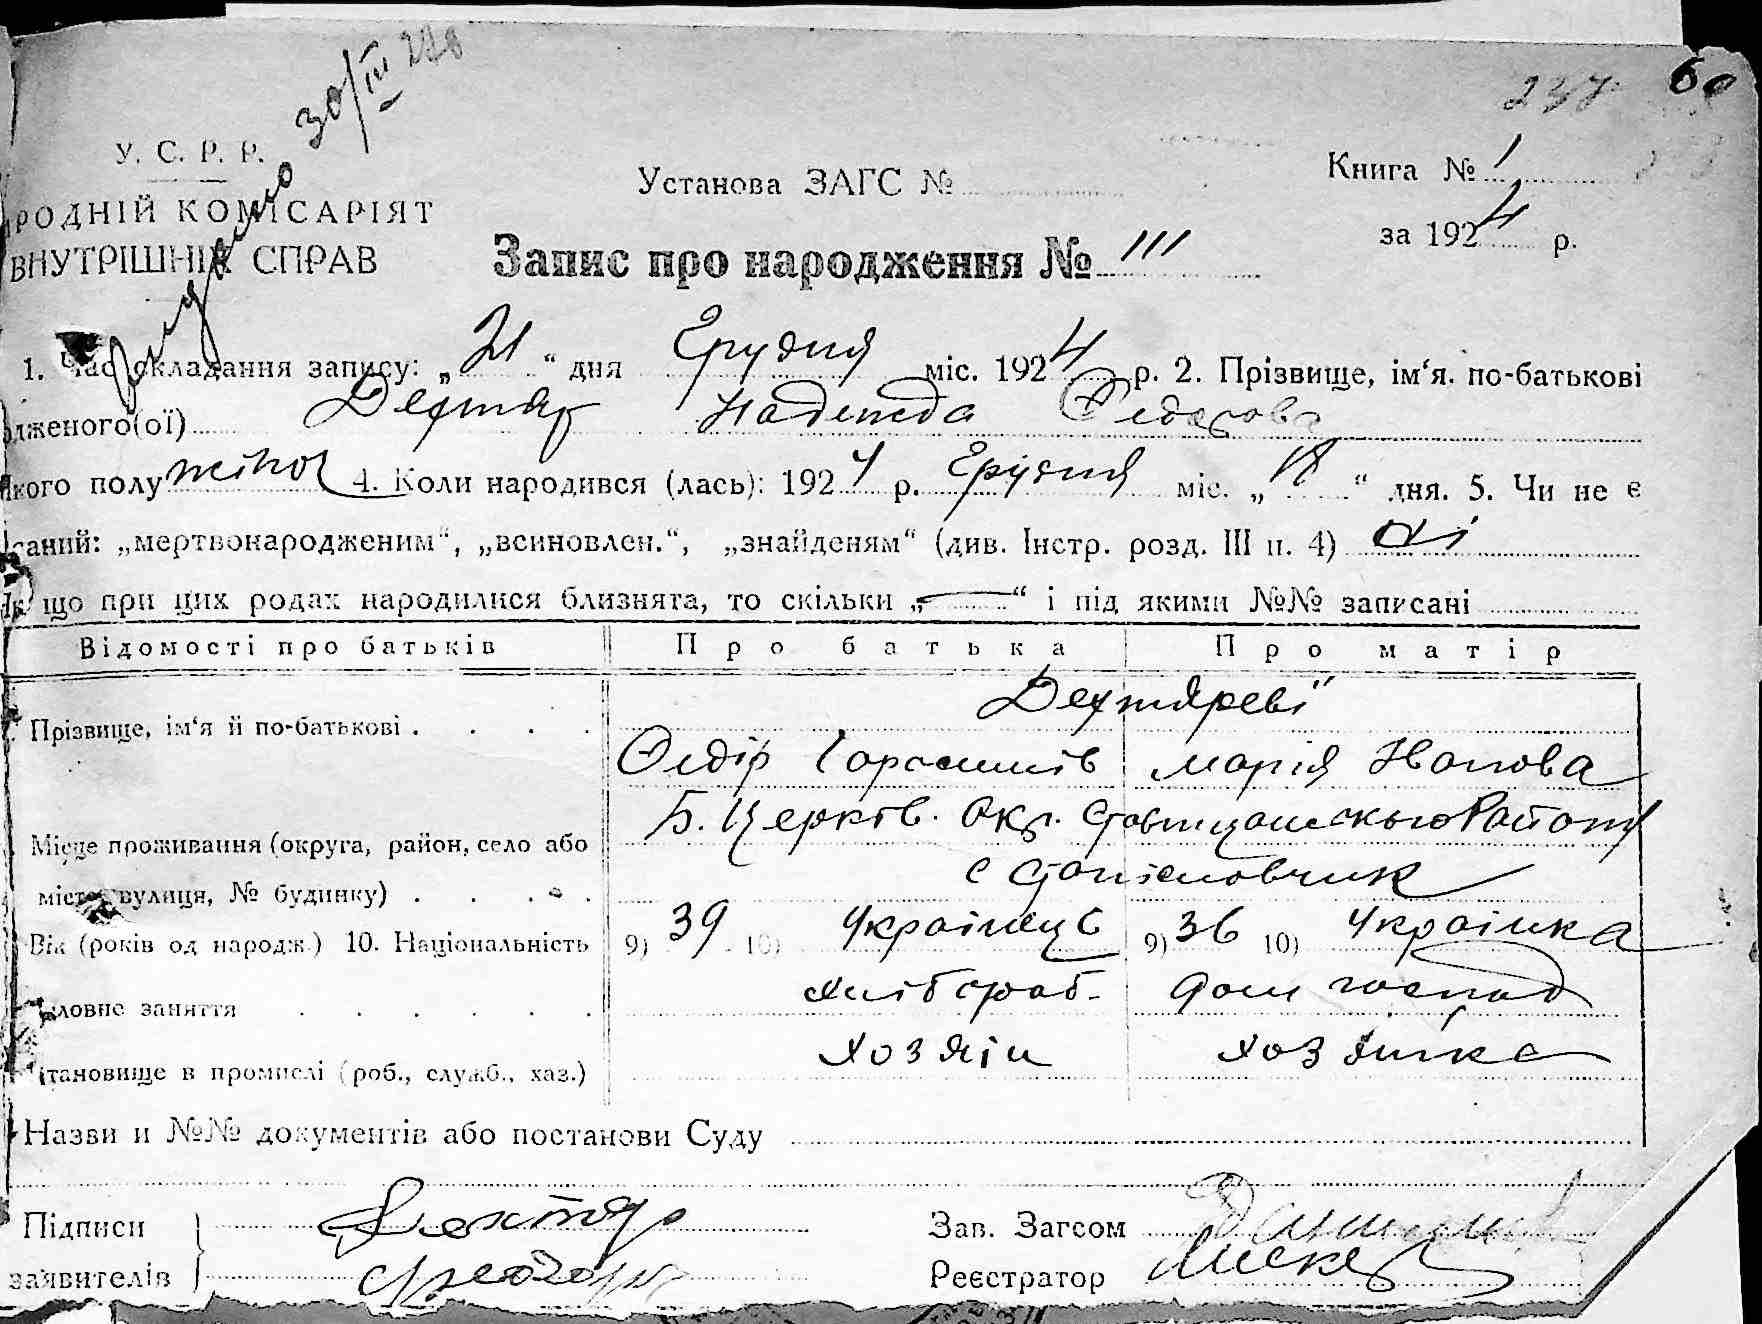 30/III 28
237 60
У. С. Р. Р.
Установа ЗАГС №
Книга № 1
РОДНІЙ КОМІСАРІЯТ
за 1924 р.
ВНУТРІШНІХ СПРАВ
Запис про народження № 111
1. Час складання запису: „21“ дня Грудня міс. 1924 р. 2. Прізвище, ім‘я. по-батькові
дженого(ої) Дехтяр Надежда Федорова
якого полу жіноч 4. Коли народився (лась): 1924 р. Грудня міс. „18“ дня. 5. Чи не є
саний: „мертвонародженим“, „всиновлен.“, „знайденям“ (див. Інстр. розд. III п. 4) ні
Як що при цих родах народилися близнята, то скільки „—“ і під якими №№ записані
Відомості про батьків Про батька Про матір
Дехтяреві
Прізвище, ім‘я й по-батькові
Федір Марія Іванова
Б. Церків. Окр. Ставищанського Району
Місце проживання (округа, район, село або
с Станіславчик
місто, вулиця, № будинку)
Вік (років од народж.) 10. Національність 9) 39 10) Українець 9) 36 10) Українка
Головне заняття хлібороб. дом господ
Становище в промислі (роб., служб., хаз.) хозяїн хозяйка
Назви й №№ документів або постанови Суду
Підписи Дехтяр Зав. Загсом
заявителів Федор Реєстратор